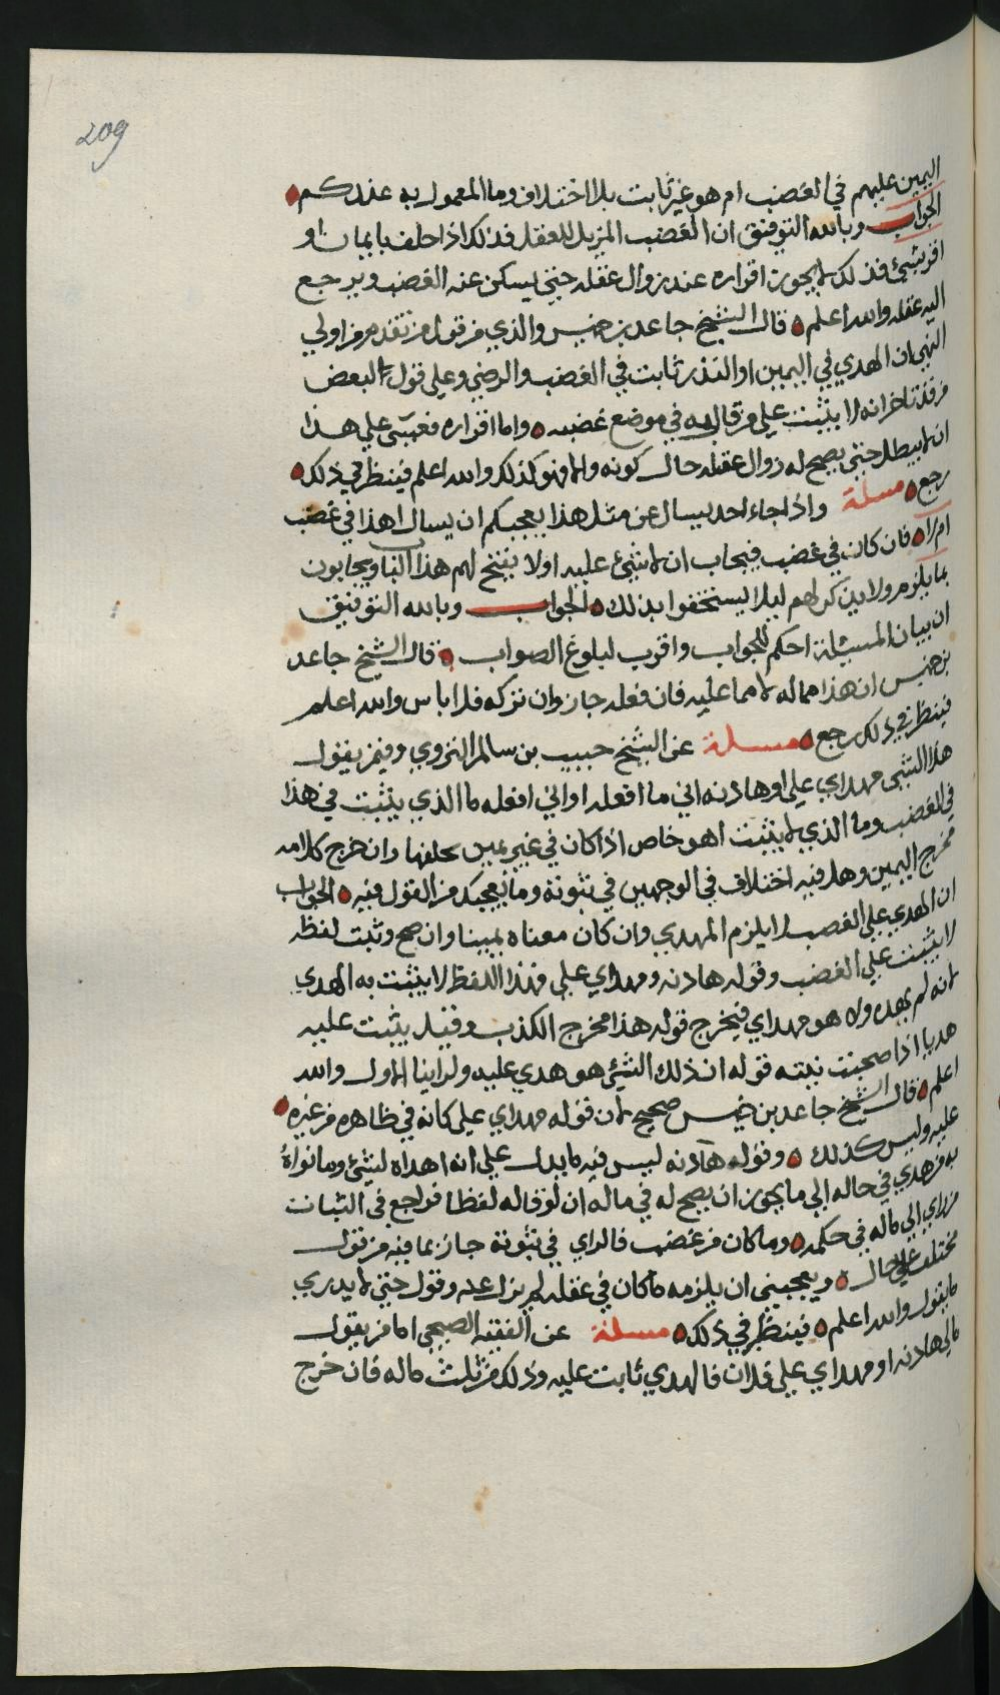 209
اليمين عليهم في الغضب ام هو غير ثابت بلا اختلاف وما المعمول به عندكم
الجواب وبالله التوفيق ان الغضب المزيل للعقل فذلك اذا حلف بايمان او
اقر بشيئ فذلك لا يجوز اقراره عند زوال عقله حتي يسكن عنه الغضب ويرجع
اليه عقله والله اعلم قال الشيخ جاعد بن خميس والذي من قول من تقدم من اولي
النهي ان الهدي في اليمين او النذر ثابت في الغضب والرضي وعلي قول البعض
من تاخر انه لا يثبت علي من قاله في موضع غضبه واما اقراره فعسي علي هذا
ان لا يبطل حتي يصح له زوال عقله حال كونه والا فهو كذلك والله اعلم فينظر في ذلك
رجع مسلة واذا جاء احد يسال عن مثل هذا يعجبكم ان يسال اهذا في غضب
ام لا فان كان في غضب فيجاب ان لا شيئ عليه اولا يفتح لهم هذا الباب ويجابون
بما يلزم ولا يذكر لهم ليلا يستخفوا بذلك الجواب وبالله التوفيق
ان بيان المسئلة احكم للجواب واقرب لبلوغ الصواب قال الشيخ جاعد
بن خميس ان هذا مما له لا مما عليه فان فعله جاز وان تركه فلا باس والله اعلم
فينظر في ذلك رجع مسلة عن الشيخ حبيب بن سالم النزوي وفيمن يقول
هذا الشي مهداي علي او هادنه اني ما افعله او اني افعله ما الذي يثبت في هذا
في الغضب وما الذي لا يثبت اهو خاص اذا كان في غير يمين يحلفها وان خرج كلامه
مخرج اليمين وهل فيه اختلاف في الوجهين في ثبوته وما يعجبك من القول فيه الجواب
ان الهدي علي الغصب لا يلزم المهدي وان كان معناه يمينا وان صح وثبت لفظه
لا يثبت علي الغضب وقوله هادنه ومهداي علي فهذا اللفظ لا يثبت به الهدي
لانه لم يهده ولا هو مهداي فيخرج قوله هذا مخرج الكذب وقيل يثبت عليه
هديا اذا صحبت نيته قوله ان ذلك الشيئ هو هدي عليه ولراينا الاول والله
اعلم قال الشيخ جاعد بن خميس صحيح لان قوله مهداي علي كانه في ظاهره من غيره
عليه وليس كذلك وقوله هادنه ليس فيه ما يدل علي انه اهداه لشيئ وما نواه
به من هدي في حاله الي ما يجوز ان يصح له في ماله ان لو قاله لفظا فراجع في الثبات
من راي الي ماله في حكمه وما كان من غضب فالراي في ثبوته جاز بما فيه من قول
مختلف علي حال ويعجبني ان يلزمه ما كان في عقله لم يزل عنه وقول حتي لا يدري
ما يقول والله اعلم فينظر في ذلك مسلة عن الفقيه الصبحي اما من يقول
مالي هادنه او مهداي علي فلان فالهدي ثابت عليه وذلك من ثلث ماله فان خرج